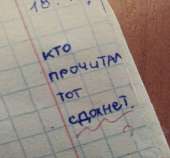 КТО
ПРОЧИТАЛ
ТОТ
СДОХНЕТ.